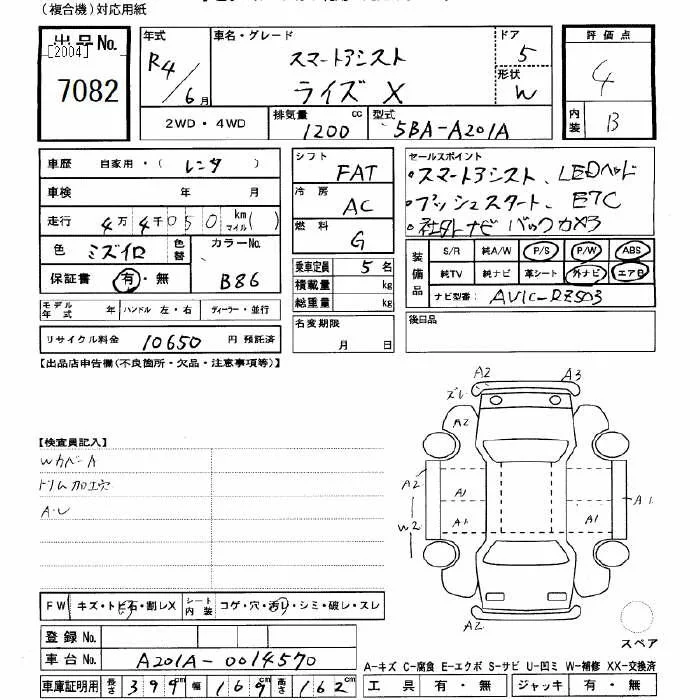 (複合機)対応用紙
出品No.
[2004]
7082
年式 R4/6月
車名・グレード スマートアシスト
ライズ X
ドア 5
形状 W
2WD・4WD
排気量 1200 cc
型式 5BA-A201A
評価点 4
内装 B
車歴 自家用・(レンタ)
車検 年 月
走行 4万4千050 km マイル( )
色 ミズイロ 色替 カラーNo. B86
保証書 有・無
モデル年式 年 ハンドル 左・右 ディーラー・並行
リサイクル料金 10650 円 預託済
シフト FAT
冷房 AC
燃料 G
乗車定員 5名
積載量 kg
総重量 kg
名変期限 月 日
セールスポイント
・スマートアシスト、LEDヘッド
・プッシュスタート、ETC
・社外ナビ バックカメラ
装備品 S/R 純A/W P/S P/W ABS
純TV 純ナビ 革シート 外ナビ エアB
ナビ型番: AVIC-RZ503
後日品
【出品店申告欄(不良箇所・欠品・注意事項等)】
【検査員記入】
Wカバー A
ドリム加エ穴
A・U
A2 A3
ズレ
A2
A2 A1 A1
W2 A1 A1
A2
スペア
FW キズ・トビ石・割レX シート内装 コゲ・穴・汚レ・シミ・破レ・スレ
登録No.
車台No. A201A-0014570
車庫証明用 長さ 399cm 幅 169cm 高さ 162cm
A-キズ C-腐食 E-エクボ S-サビ U-凹ミ W-補修 XX-交換済
工具 有・無 ジャッキ 有・無